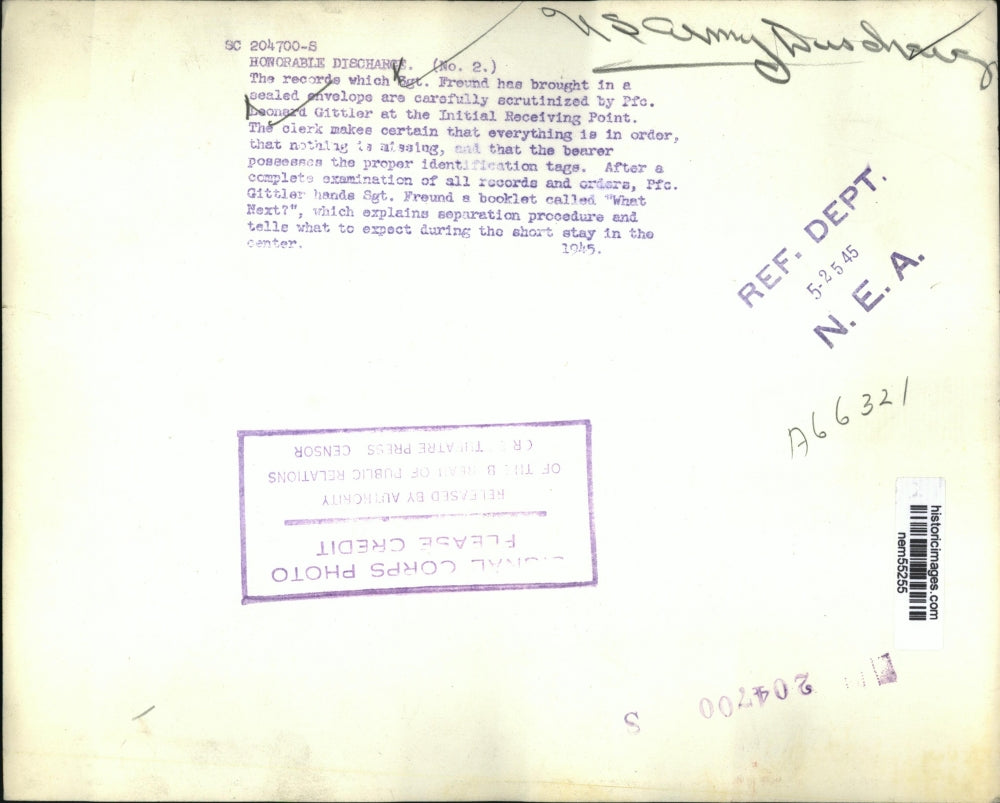 US Army Discharg
SC 204700-S
HONORABLE DISCHARGE. (No. 2.)
The records which Sgt. Freund has brought in a
sealed envelope are carefully scrutinized by Pfc.
Leonard Gittler at the Initial Receiving Point.
The clerk makes certain that everything is in order,
that nothing is missing, and that the bearer
possesses the proper identification tags. After a
complete examination of all records and orders, Pfc.
Gittler hands Sgt. Freund a booklet called "What
Next?", which explains separation procedure and
tells what to expect during the short stay in the
center. 1945.
REF. DEPT.
5-25 45
N. E. A.
A66321
SIGNAL CORPS PHOTO
PLEASE CREDIT
RELEASED BY AUTHORITY
OF THE BUREAU OF PUBLIC RELATIONS
THEATRE PRESS CENSOR
historicimages.com
nem55255
204700
S